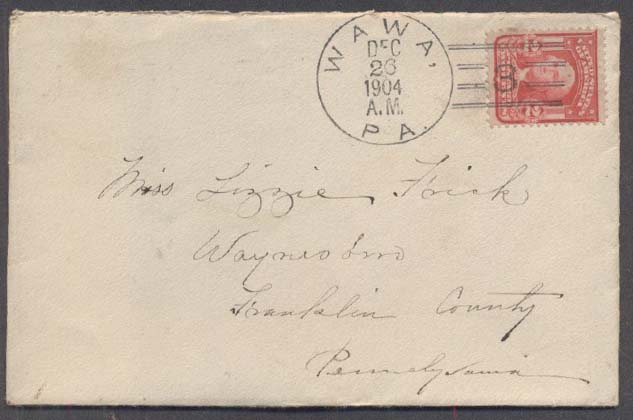 WAWA,
DEC
26
1904
A.M.
PA.
8
2 2
Miss Lizzie Frick
Waynesboro
Franklin County
Pennsylvania